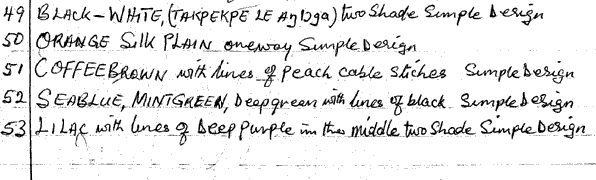 49 BLACK-WHITE, (TAKPEKPE LE Agbga) two Shade Simple Design
50 ORANGE Silk PLAIN oneway Simple Design
51 COFFEEBROWN with lines of Peach cable Stiches Simple Design
52 SEABLUE, MINTGREEN, Deepgreen with lines of black Simple Design
53 LILAC with lines of Deep Purple in the middle two Shade Simple Design